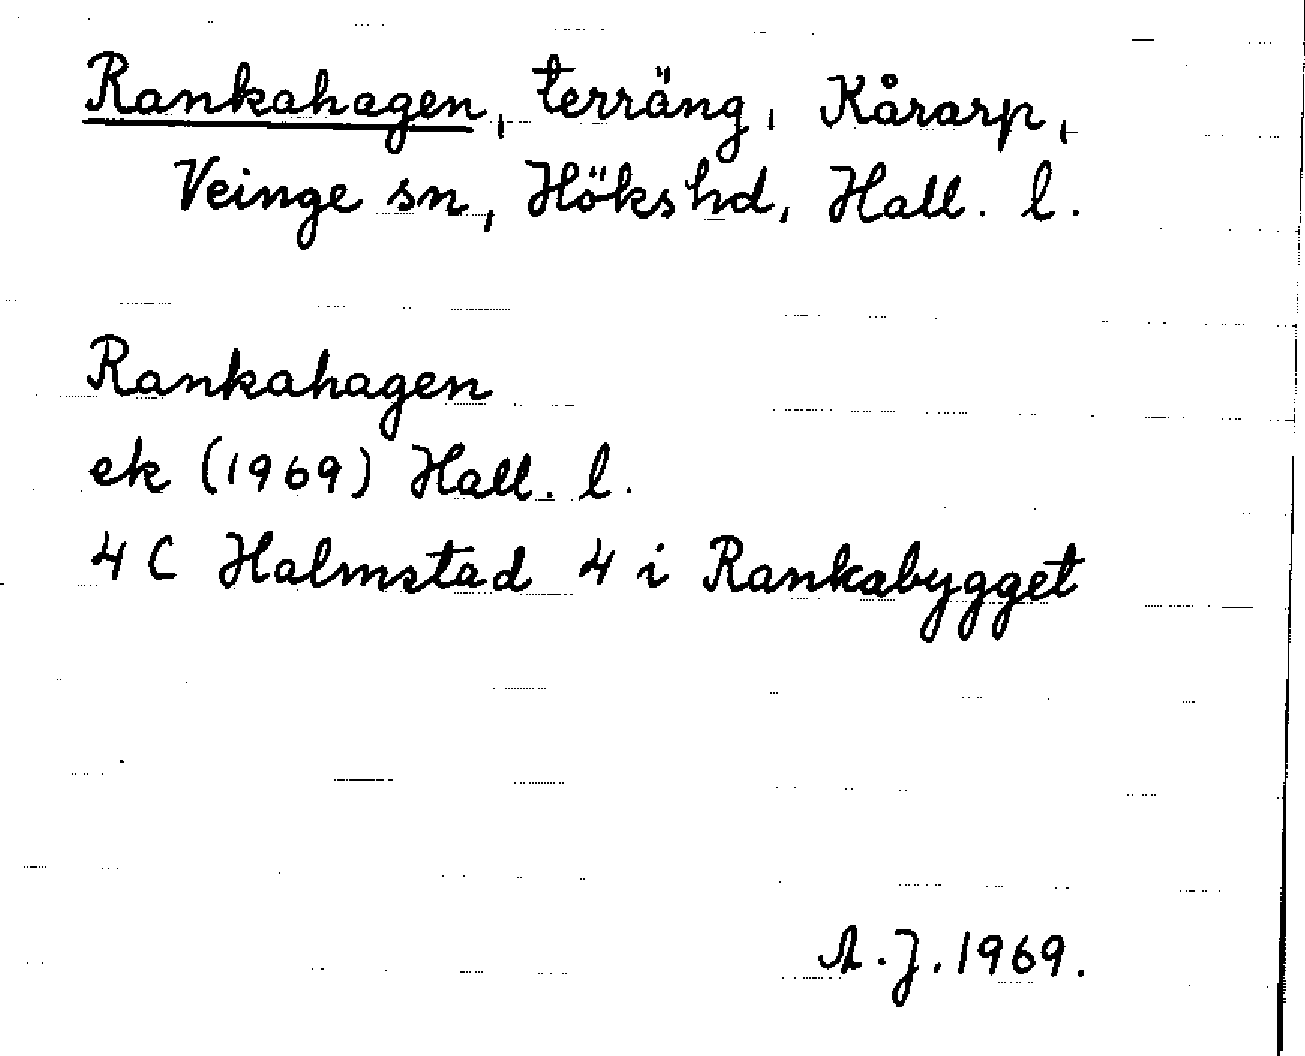 Rankahagen, terräng, Kårarp,
Veinge sn, Höks hd, Hall. l.
Rankahagen
ek (1969) Hall. l.
4 C Halmstad 4 i Rankabygget
A.J. 1969.